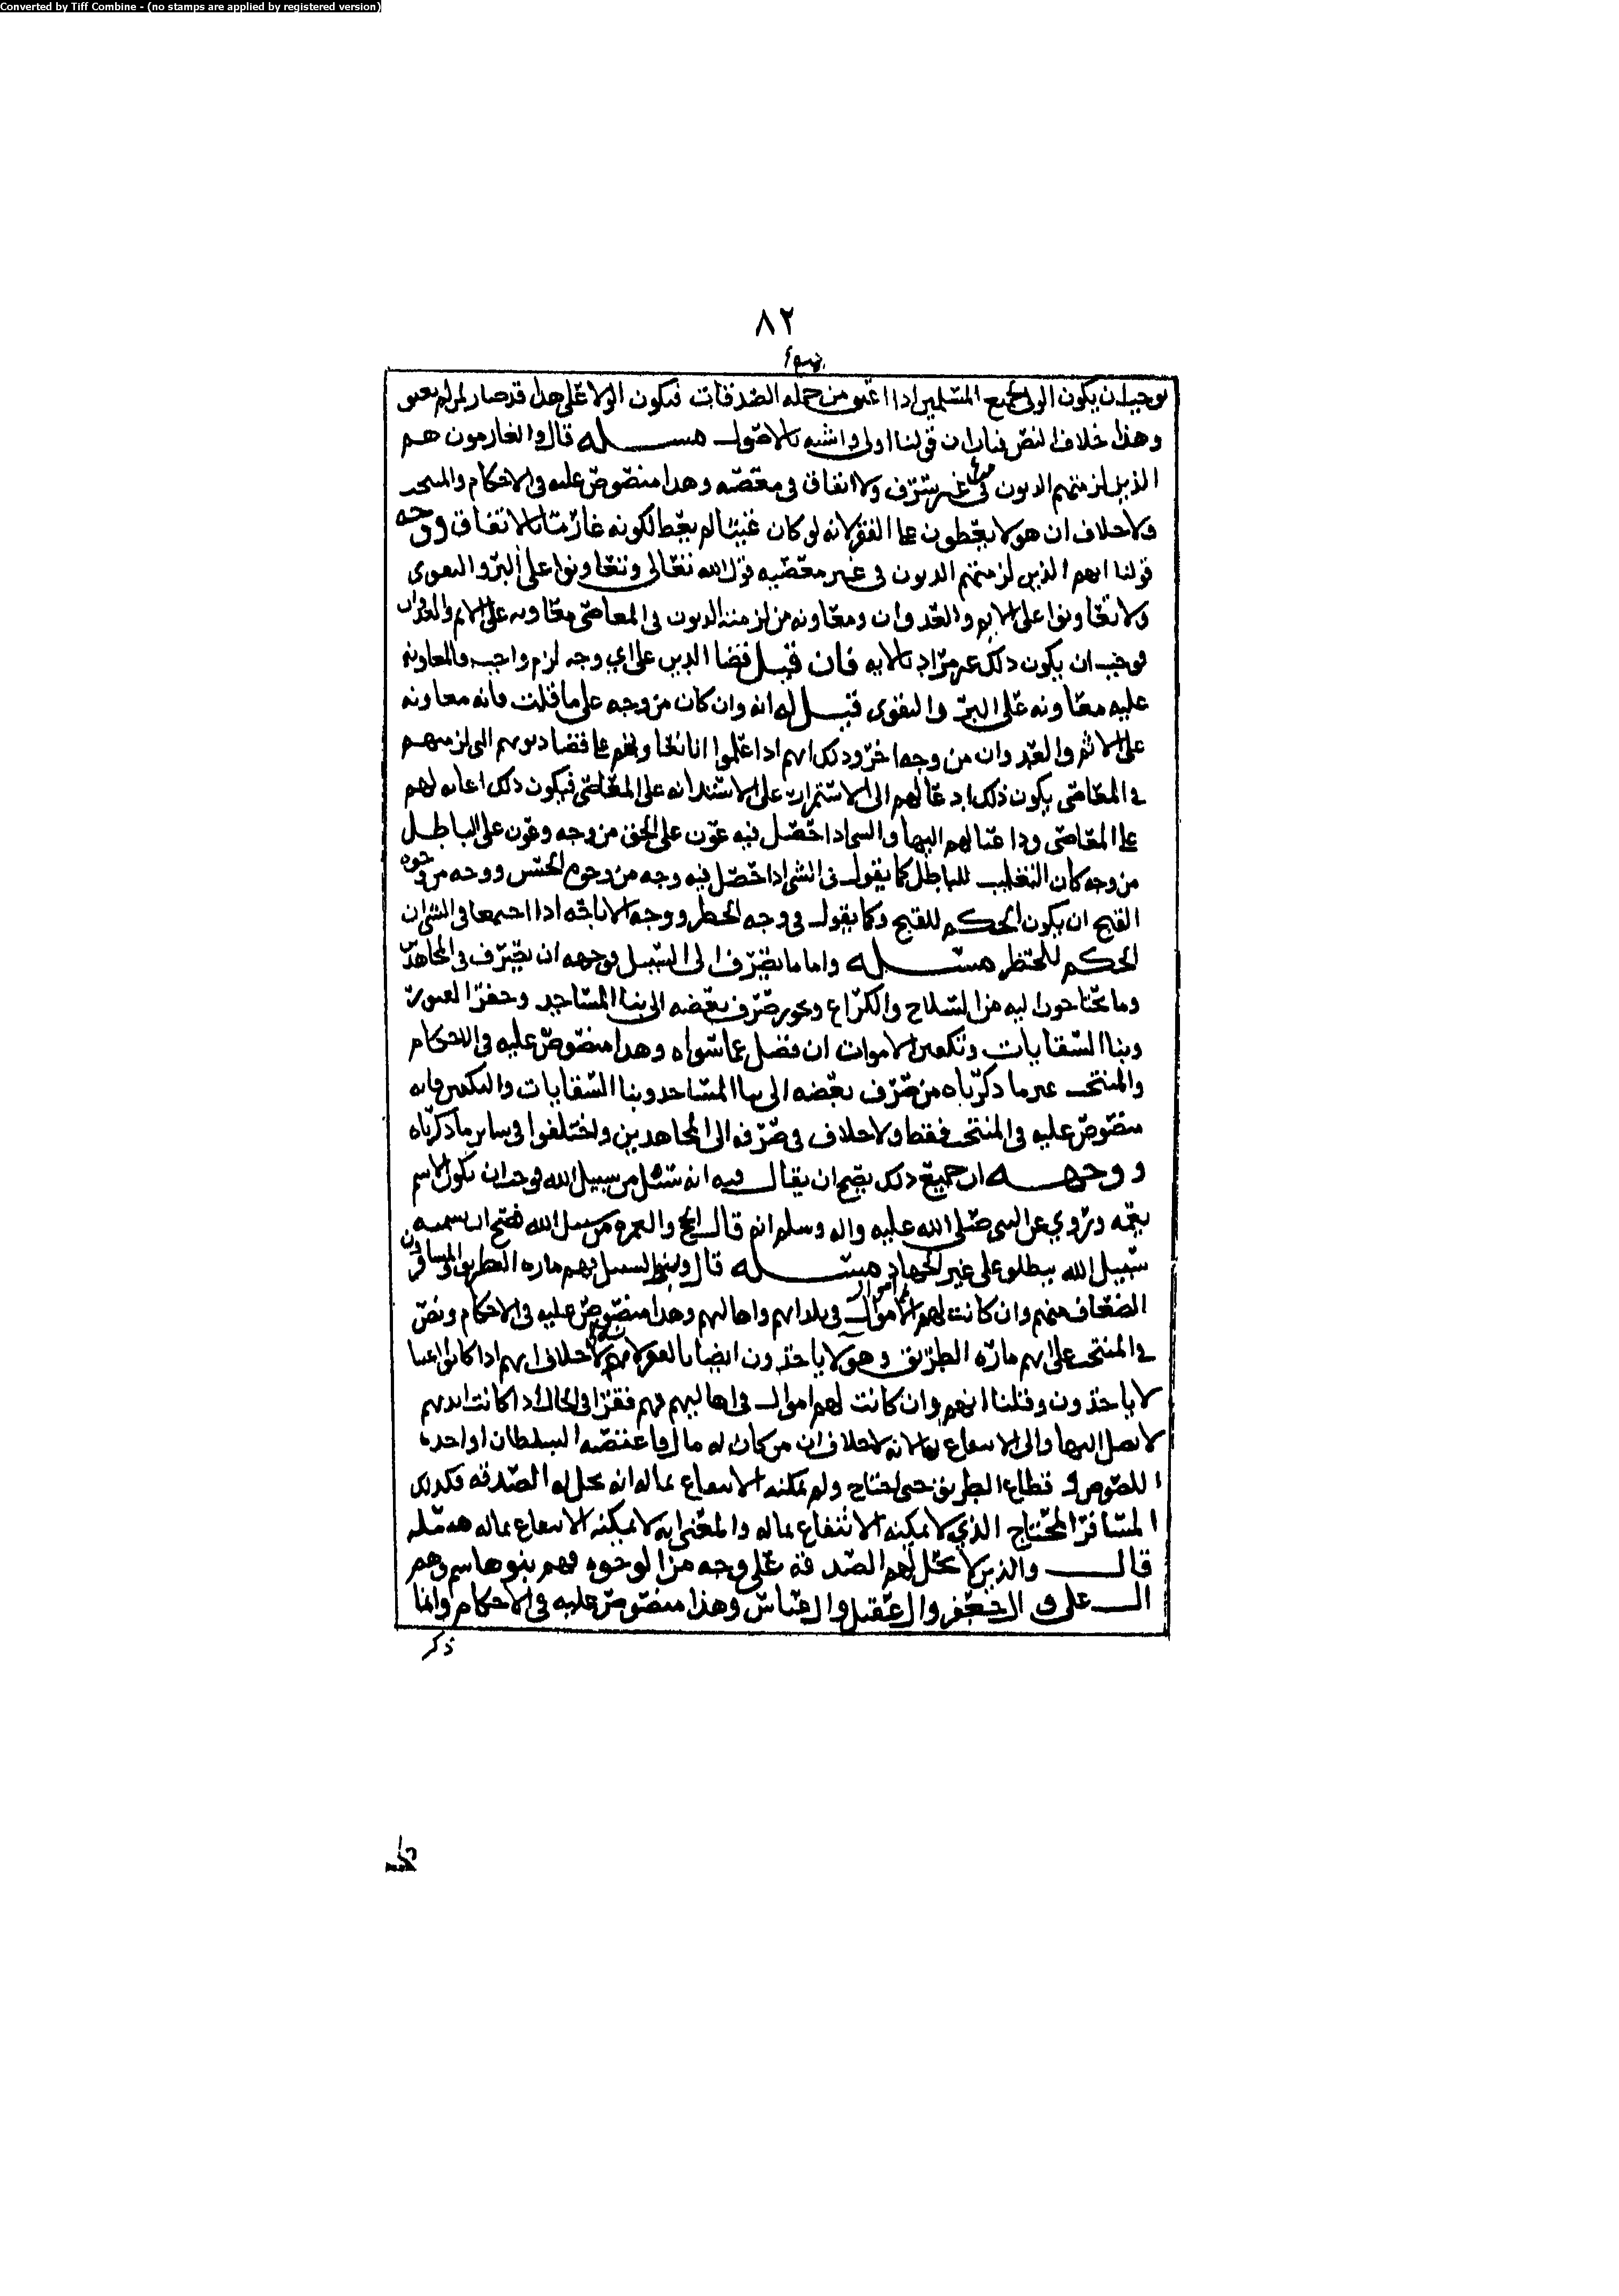 Converted by Tiff Combine - (no stamps are applied by registered version)
٨٢
يوجب ان يكون الولا لجميع المسلمين اذا اعتق من جمله الصدقات فيكون الولا على هذا قد صار لمن لم يعتق
وهذا خلاف النص فبان ان قولنا اولى واشبه بالاصول مسله قال والغارمون هم
الذين لزمتهم الديون في غير سرف ولا انفاق في معصيه وهذا منصوص عليه في الاحكام والمنتخب
ولا خلاف ان هولا يعطون على الفقر لانه لو كان غنيا لم يعط لكونه غارما بالاتفاق ووجه
قولنا انهم الذين لزمتهم الديون في غير معصيه قول الله تعالى وتعاونوا على البر والتقوى
ولا تعاونوا على الاثم والعدوان ومعاونه من لزمته الديون في المعاصي معاونه على الاثم والعدوان
فوجب ان يكون ذلك غير مراد بالايه فان قيل قضا الدين على اي وجه لزم واجب والمعاونه
عليه معاونه على البر والتقوى قيل له انه وان كان من وجه على ما قلت فانه معاونه
على الاثم والعدوان من وجه اخر وذلك انهم اذا علموا انا نعاونهم على قضا ديونهم التي لزمتهم
في المعاصي يكون ذلك ادعا لهم الى الاستمرار على الاستدانه على المعاصي فيكون ذلك اعانه لهم
على المعاصي وداعيا لهم اليها والشي اذا حصل فيه عون على الحق من وجه وعون على الباطل
من وجه كان التغليب للباطل كما يقول في الشي اذا حصل فيه وجه من وجوه الحسن ووجه من وجوه
القبح ان يكون الحكم للقبح وكما يقول في وجه الحظر ووجه الاباحه اذا اجتمعا في الشي ان
الحكم للحظر مسله واما ما يصرف الى السبيل فوجهه ان يصرف في المجاهدين
وما يحتاجون اليه من السلاح والكراع ويجوز صرف بعضه الى بنا المساجد وحفر القبور
وبنا السقايات وتكفين الاموات ان فضل عما سواه وهذا منصوص عليه في الاحكام
والمنتخب غير ما ذكرناه من صرف بعضه الى بنا المساجد وبنا السقايات والتكفين فانه
منصوص عليه في المنتخب فقط ولا خلاف في صرفه الى المجاهدين واختلفوا في ساير ما ذكرناه
ووجهه ان جميع ذلك يصح ان يقال فيه انه من سبيل الله فوجب ان يكون الاسم
يعمه وروي عن النبي صلى الله عليه واله وسلم انه قال الحج والعمره من سبيل الله فصح ان اسم
سبيل الله يطلق على غير الجهاد مسله قال وبنو السبيل فهم ماره الطريق والمسافرون
الضعاف منهم وان كانت لهم اموال في بلدانهم واهاليهم وهذا منصوص عليه في الاحكام ونص
في المنتخب على انهم ماره الطريق وهولا ياخذون ايضا بالفقر لانهم لا خلاف انهم اذا كانوا اغنيا
لا ياخذون وقلنا انهم وان كانت لهم اموال في اهاليهم فهم فقرا في الحال اذا كانت ايديهم
لا تصل اليها والى الانتفاع بها لانه لا خلاف ان من كان له مال فاغتصبه السلطان او اخذه
اللصوص او قطاع الطريق حتى احتاج ولم يمكنه الانتفاع بماله انه تحل له الصدقه فكذلك
المسافر المحتاج الذي لا يمكنه الانتفاع بماله والمعنى انه لا يمكنه الانتفاع بماله مسله
قال والذين لا تحل لهم الصدقه على وجه من الوجوه فهم بنو هاشم وهم
ال علي وال جعفر وال عقيل وال عباس وهذا منصوص عليه في الاحكام وانما
ذكر